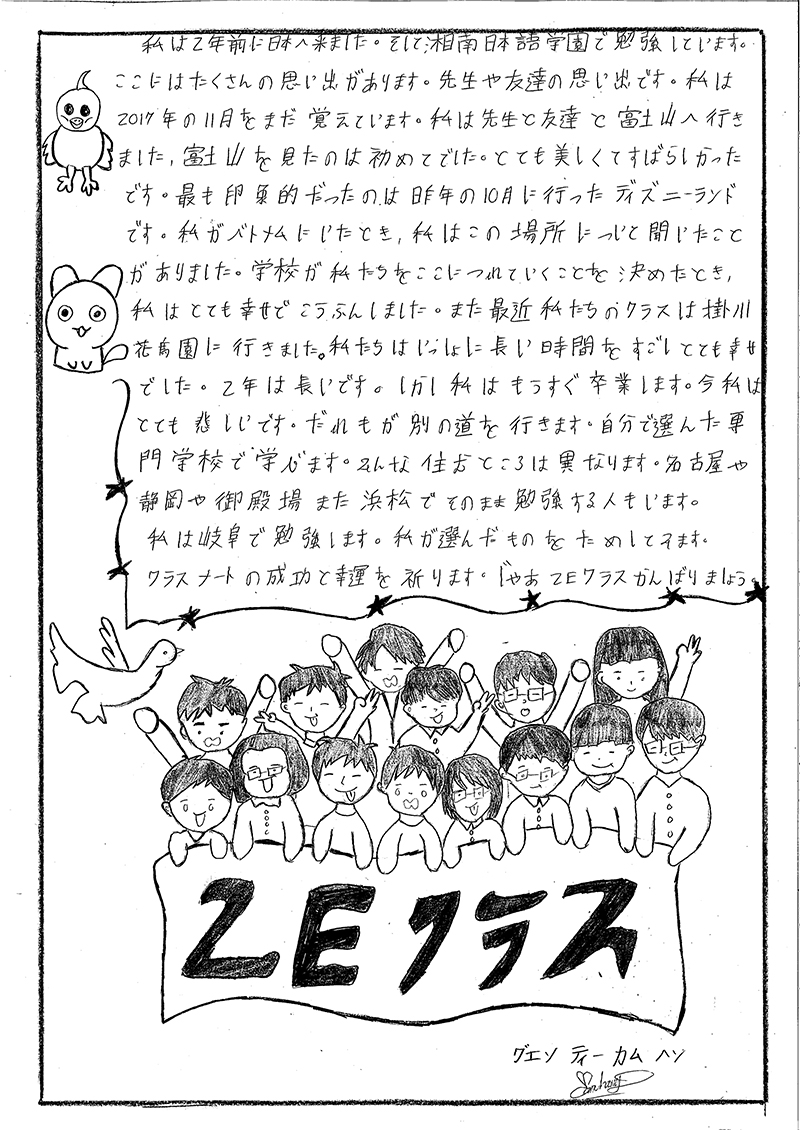 私は2年前に日本へ来ました。そして湘南日本語学園で勉強しています。
ここにはたくさんの思い出があります。先生や友達の思い出です。私は
2017年の11月をまだ覚えています。私は先生と友達と富士山へ行き
ました,富士山を見たのは初めてでした。とても美しくてすばらしかった
です。最も印象的だったのは昨年の10月に行ったディズニーランド
です。私がベトナムにいたとき,私はこの場所について聞いたこと
がありました。学校が私たちをここにつれていくことを決めたとき,
私はとても幸せでこうふんしました。また最近私たちのクラスは掛川
花鳥園に行きました。私たちはいっしょに長い時間をすごしてとても幸せ
でした。2年は長いです。しかし私はもうすぐ卒業します。今私は
とても悲しいです。だれもが別の道を行きます。自分で選んだ専
門学校で学びます。みんな住むところは異なります。名古屋や
静岡や御殿場また浜松でそのまま勉強する人もいます。
私は岐阜で勉強します。私が選んだものをためしてみます。
クラスメートの成功と幸運を祈ります。じゃあ2Eクラスがんばりましょう。
2Eクラス
グエン ティー カム ハン